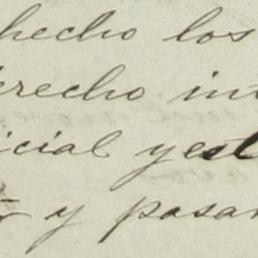 hecho los
erecho in
icial y est
y pasar